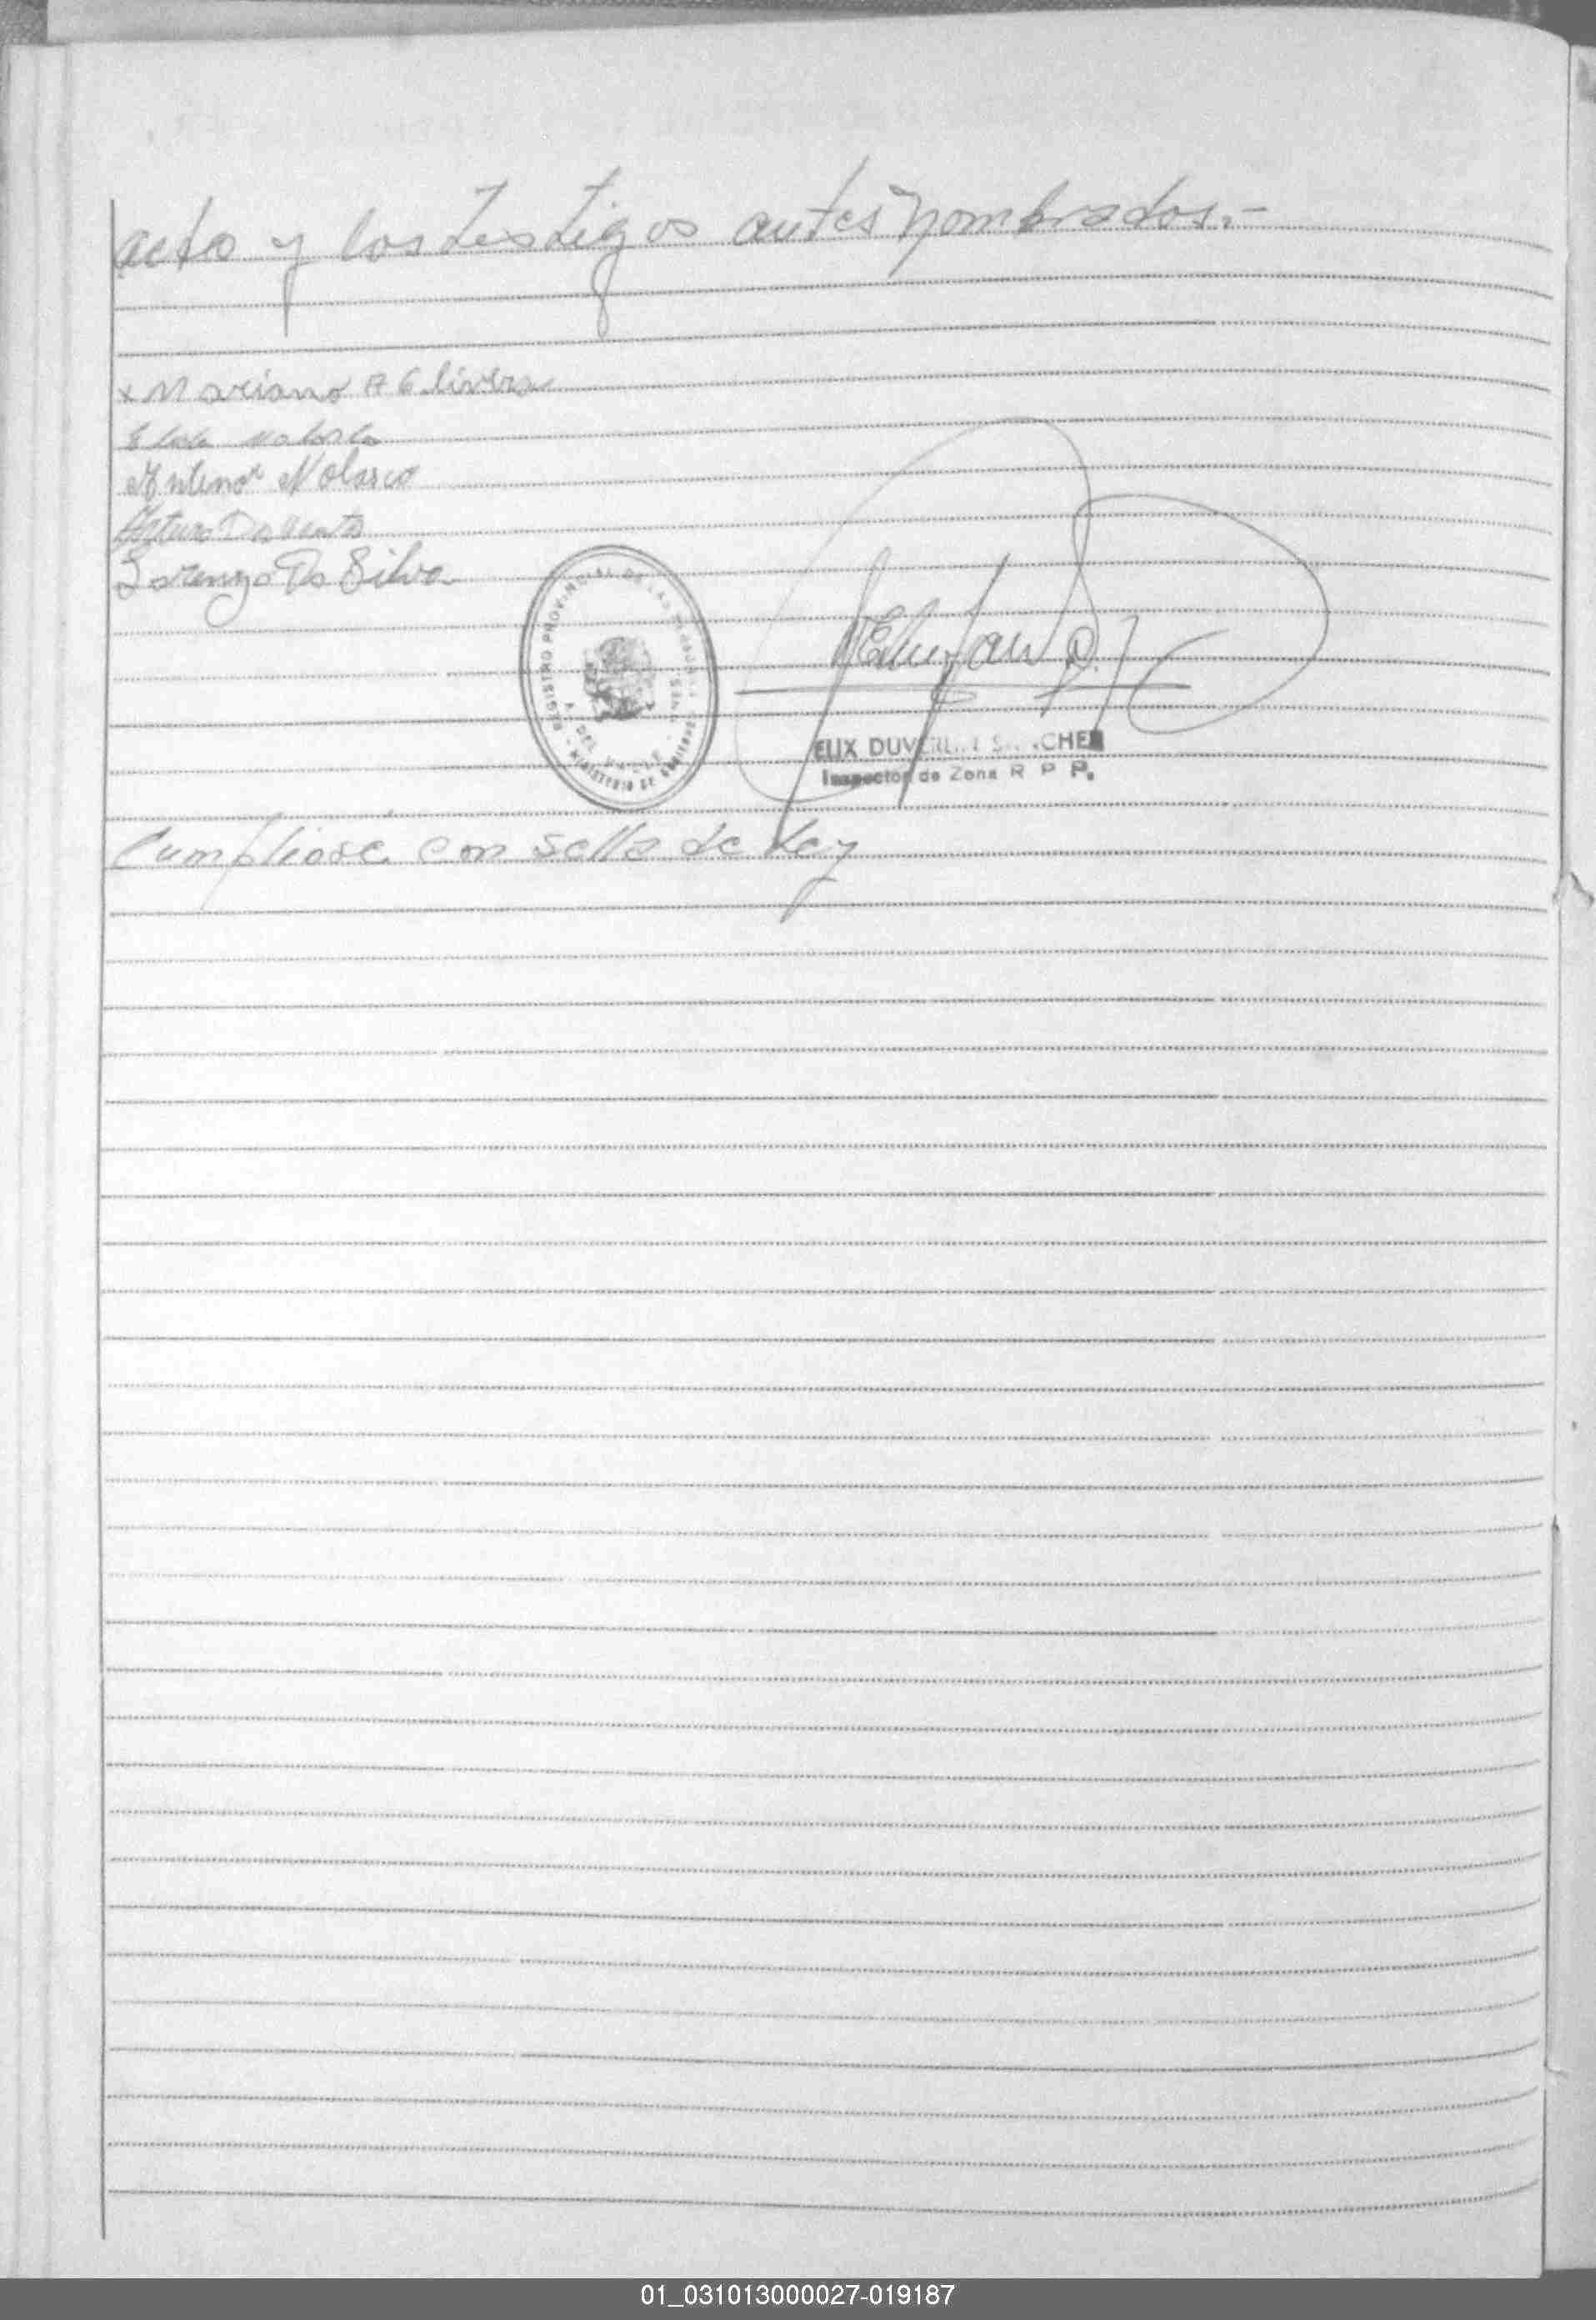 acto y los testigos antes nombrados.-
x Mariano A Olivera
Nolasco
Antenor Nolasco
Arturo
Lorenzo Da Silva
REGISTRO PROVINCIAL DE LAS
MINISTERIO DE
ELIX DUVER
Inspector de Zona R P P.
Cumpliose con sello de Ley
01_031013000027-019187